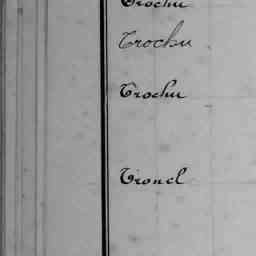 Trochu
Trochu
Trochu
Troncl